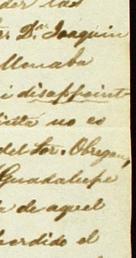 der las
Dn. Joaquin
llenaba
i disappoint
no es
del Sor. Obregon,
Guadalupe
de aquel
perdido el